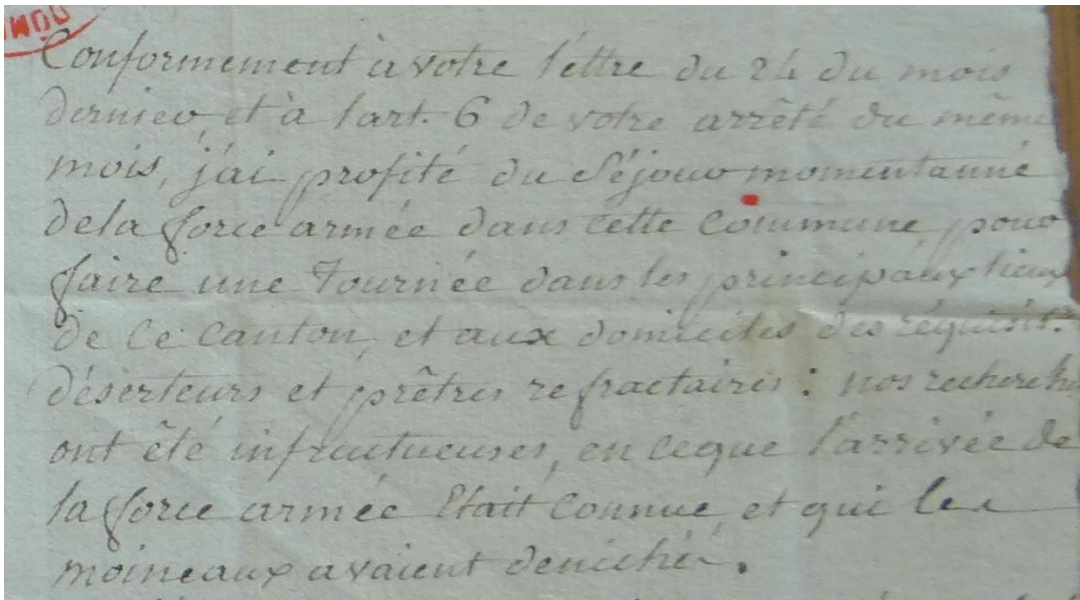 Conformement à votre lettre du 24 du mois
dernier, et à lart. 6 de votre arrêté du même
mois, j'ai profité du Séjour momentanné
dela force armée dans cette Commune, pour
faire une Tournée dans les principaux lieux
de Ce Canton, et aux domiciles des réquisit.
déserteurs et prêtres refractaires : nos recherch
ont êté infructueuses, en ceque l'arrivée de
la force armée Etait Connue, et qui les
moineaux avaient denichés.